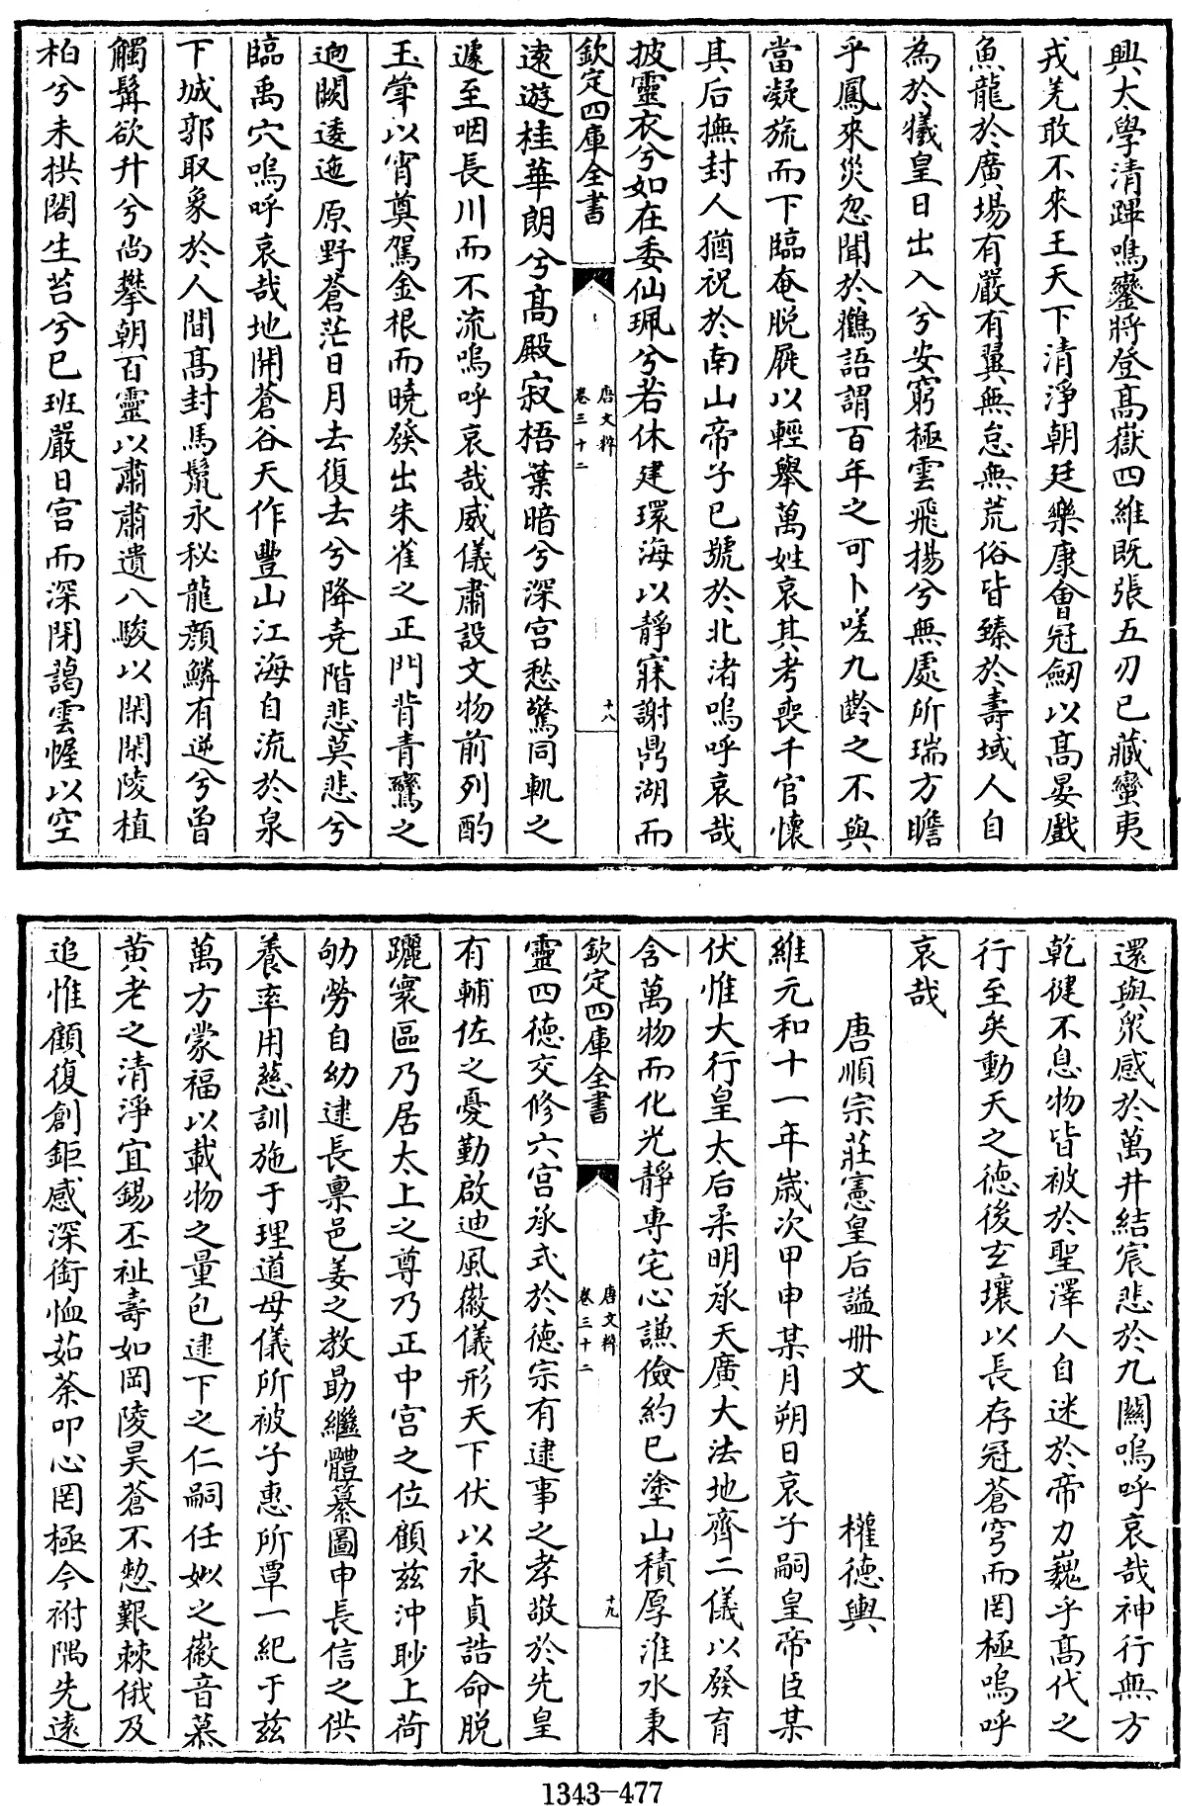 興太學清蹕鳴鑾將登高嶽四維既張五刃已藏蠻夷
戎羌敢不來王天下清淨朝廷樂康會冠劔以高晏戲
魚龍於廣場有嚴有翼無怠無荒俗皆臻於壽域人自
為於犧皇日出入兮安窮極雲飛揚兮無處所瑞方瞻
乎鳳來災忽聞於鶴語謂百年之可卜嗟九齡之不與
當凝旒而下臨奄脫屣以輕舉萬姓哀其考喪千官懷
其后撫封人猶祝於南山帝子已號於北渚嗚呼哀哉
披靈衣兮如在委仙珮兮若休建環海以靜寐謝鼎湖而
欽定四庫全書
唐文粹
卷三十二
十八
遠遊桂華朗兮高殿寂梧葉暗兮深宮愁驚同軌之
遽至咽長川而不流嗚呼哀哉威儀肅設文物前列酌
玉斝以宵奠駕金根而曉發出朱雀之正門背青鸞之
逈闕逶迤原野蒼茫日月去復去兮降堯階悲莫悲兮
臨禹穴嗚呼哀哉地開蒼谷天作豐山江海自流於泉
下城郭取象於人間高封馬鬛永秘龍顔鱗有逆兮曾
觸髯欲升兮尚攀朝百靈以肅肅遺八駿以閑閑陵植
柏兮未拱閣生苔兮已班嚴日宮而深閉藹雲幄以空
還與衆感於萬井結宸悲於九闗嗚呼哀哉神行無方
乾健不息物皆被於聖澤人自迷於帝力巍乎高代之
行至矣動天之德後玄壤以長存冠蒼穹而罔極嗚呼
哀哉
唐順宗莊憲皇后謚册文 權德輿
維元和十一年歲次甲申某月朔日哀子嗣皇帝臣某
伏惟大行皇太后柔明承天廣大法地齊二儀以發育
含萬物而化光靜專宅心謙儉約已塗山積厚淮水秉
欽定四庫全書
唐文粹
卷三十二
十九
靈四德交修六宮承式於德宗有逮事之孝敬於先皇
有輔佐之憂勤啟迪風徽儀形天下伏以永貞誥命脫
躧寰區乃居太上之尊乃正中宮之位顧茲沖眇上荷
劬勞自幼逮長稟邑姜之教勗繼體纂圖申長信之供
養率用慈訓施于理道母儀所被子惠所覃一紀于茲
萬方蒙福以載物之量包逮下之仁嗣任姒之徽音慕
黃老之清淨宜錫丕祉壽如岡陵昊蒼不愸艱棘俄及
追惟顧復創鉅感深銜恤茹荼叩心罔極今祔隅先遠
1343-477